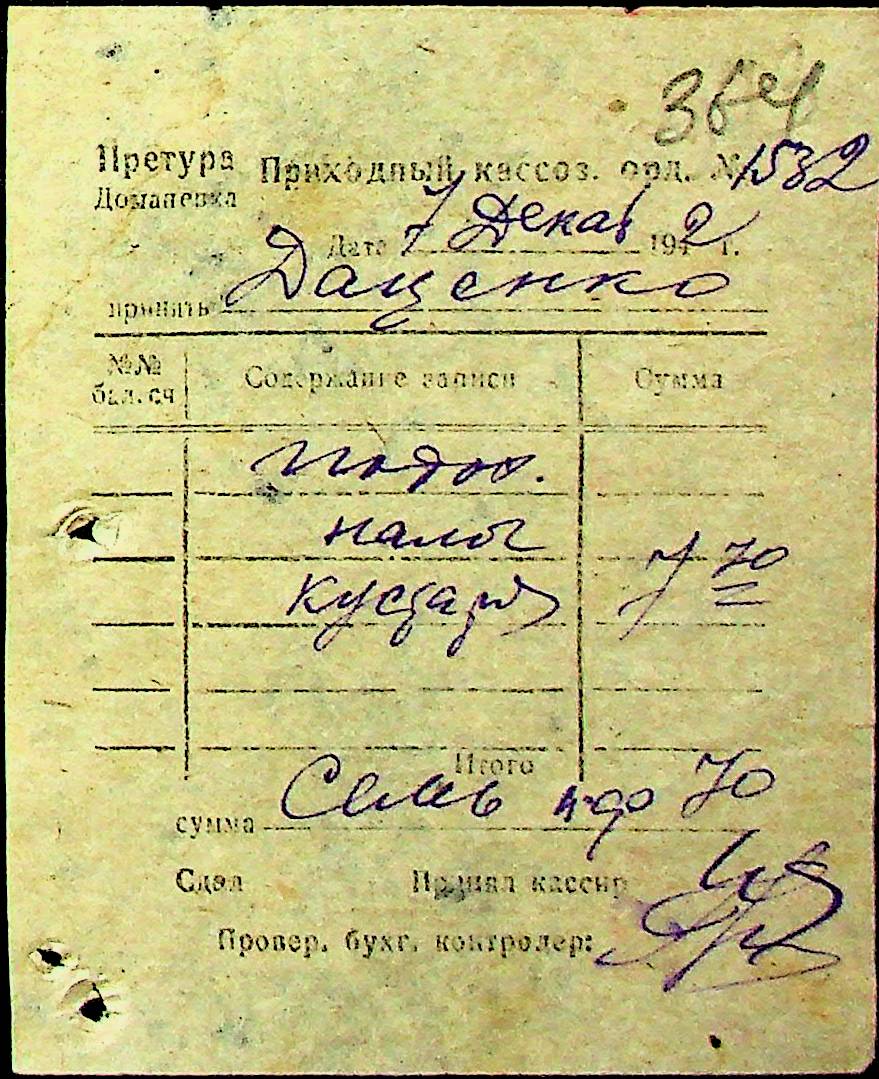 364
Претура Приходный кассов. орд. № 1532
Доманевка
Дата 7 Декаб 1942 г.
принять Даценко
№№ бал. сч Содержание записи Сумма
подох.
налог
кустаря 7 70
Итого
сумма Семь 70
Сдал Принял кассир
Провер. бухг. контролер: